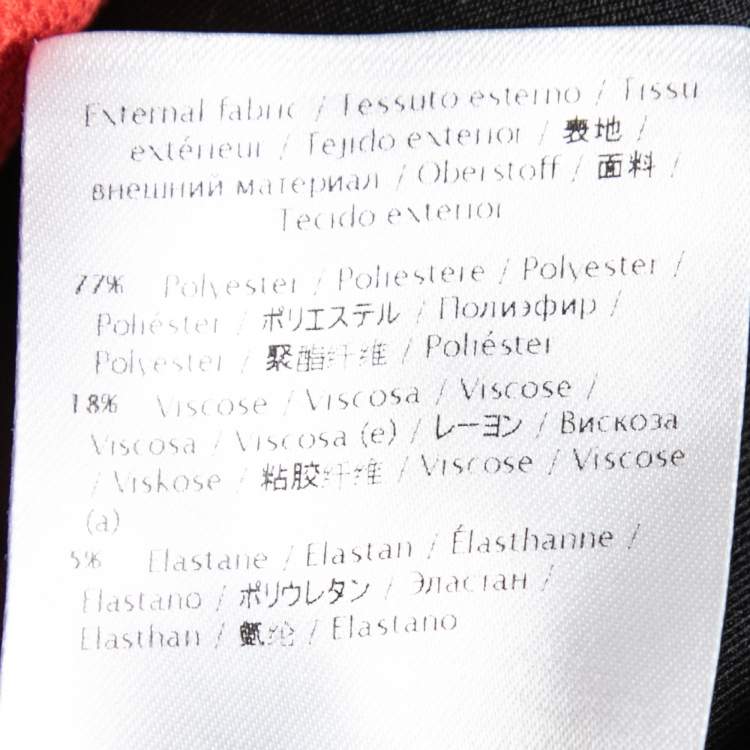 External fabric / Tessuto esterno / Tissu
extérieur / Tejido exterior / 表地 /
внешний материал / Oberstoff / 面料 /
Tecido exterior
77% Polyester / Poliestere / Polyester /
Poliéster / ポリエステル / Полиэфир /
Polyester / 聚酯纤维 / Poliéster
18% Viscose / Viscosa / Viscose /
Viscosa / Viscosa (e) / レーヨン / Вискоза
/ Viskose / 粘胶纤维 / Viscose / Viscose
(a)
5% Elastane / Elastan / Élasthanne /
Elastano / ポリウレタン / Эластан /
Elasthan / 氨纶 / Elastano